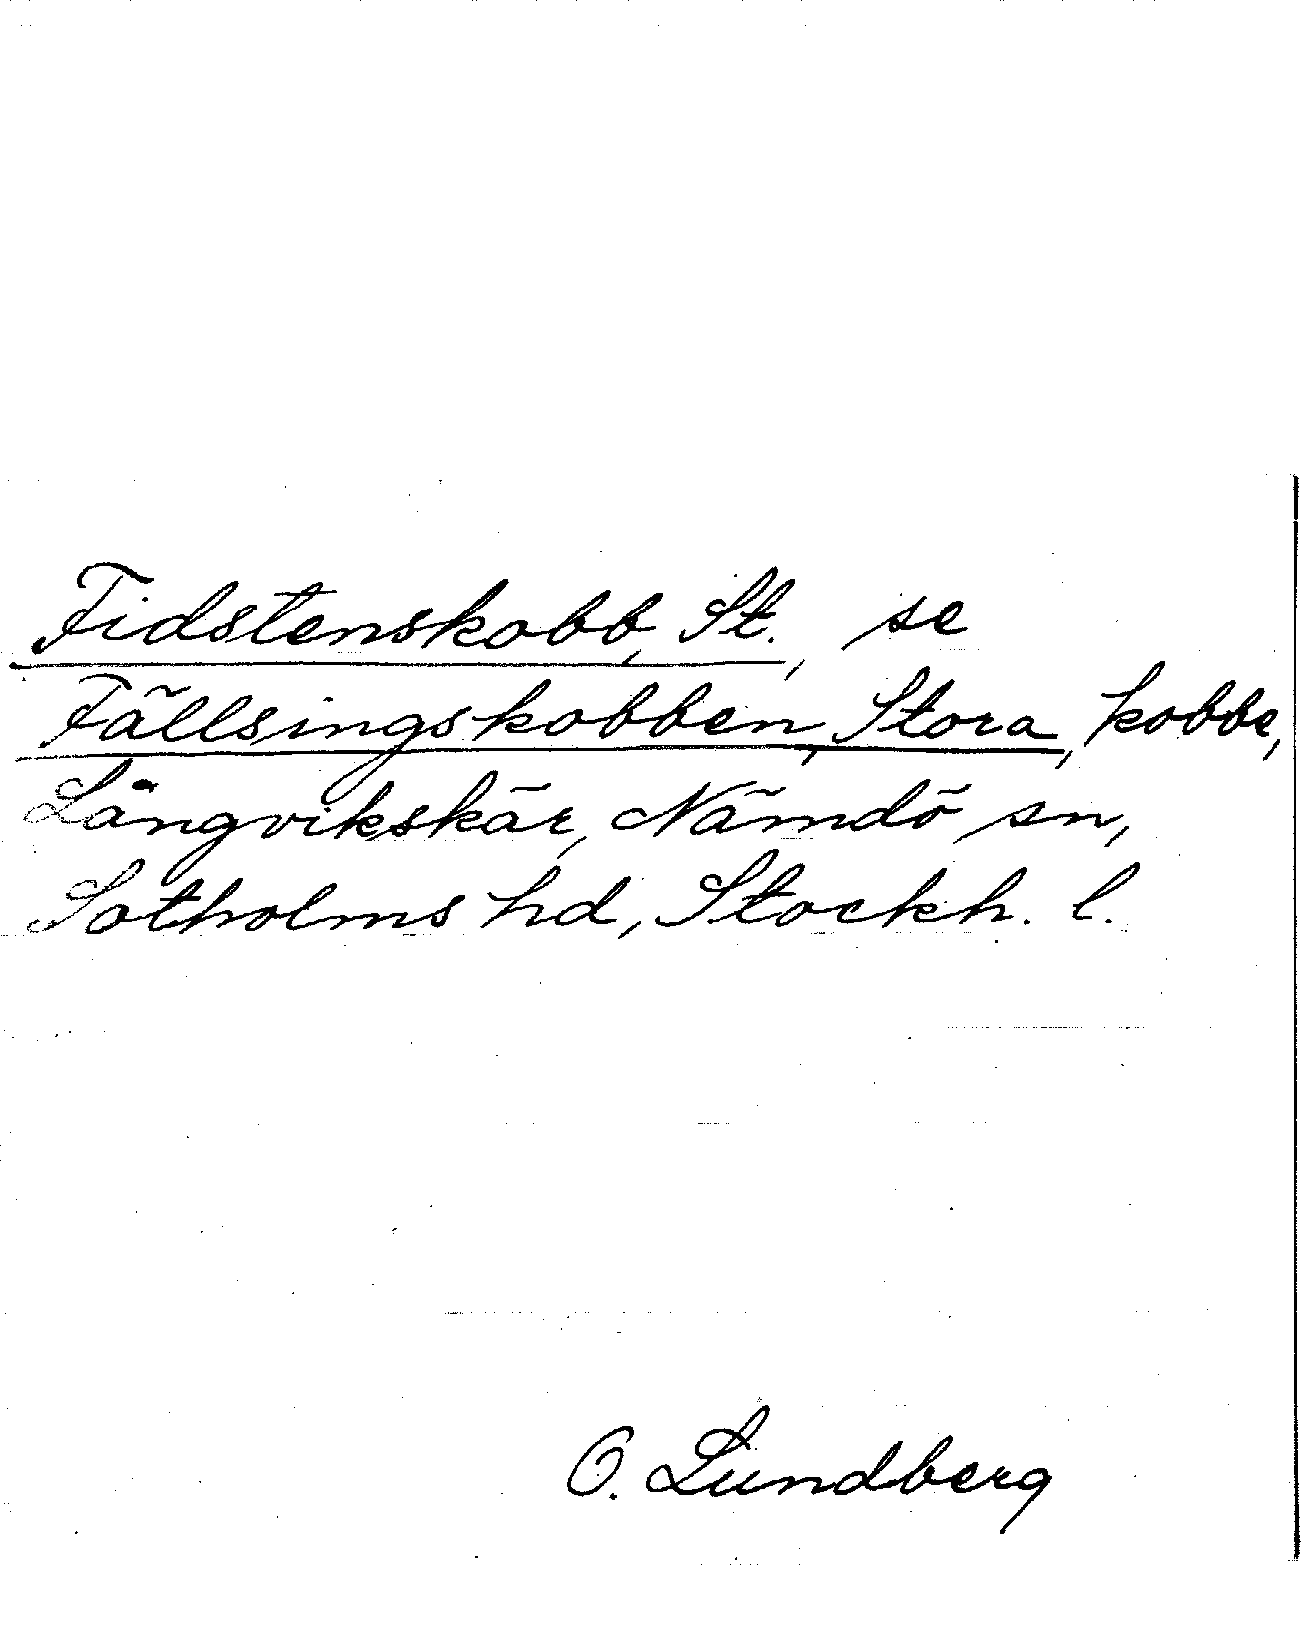 Fidstenskobb, St., se
Fällsingskobben, Stora, kobbe,
Långvikskär, Nämdö sn,
Sotholms hd, Stockh. l.
O. Lundberg